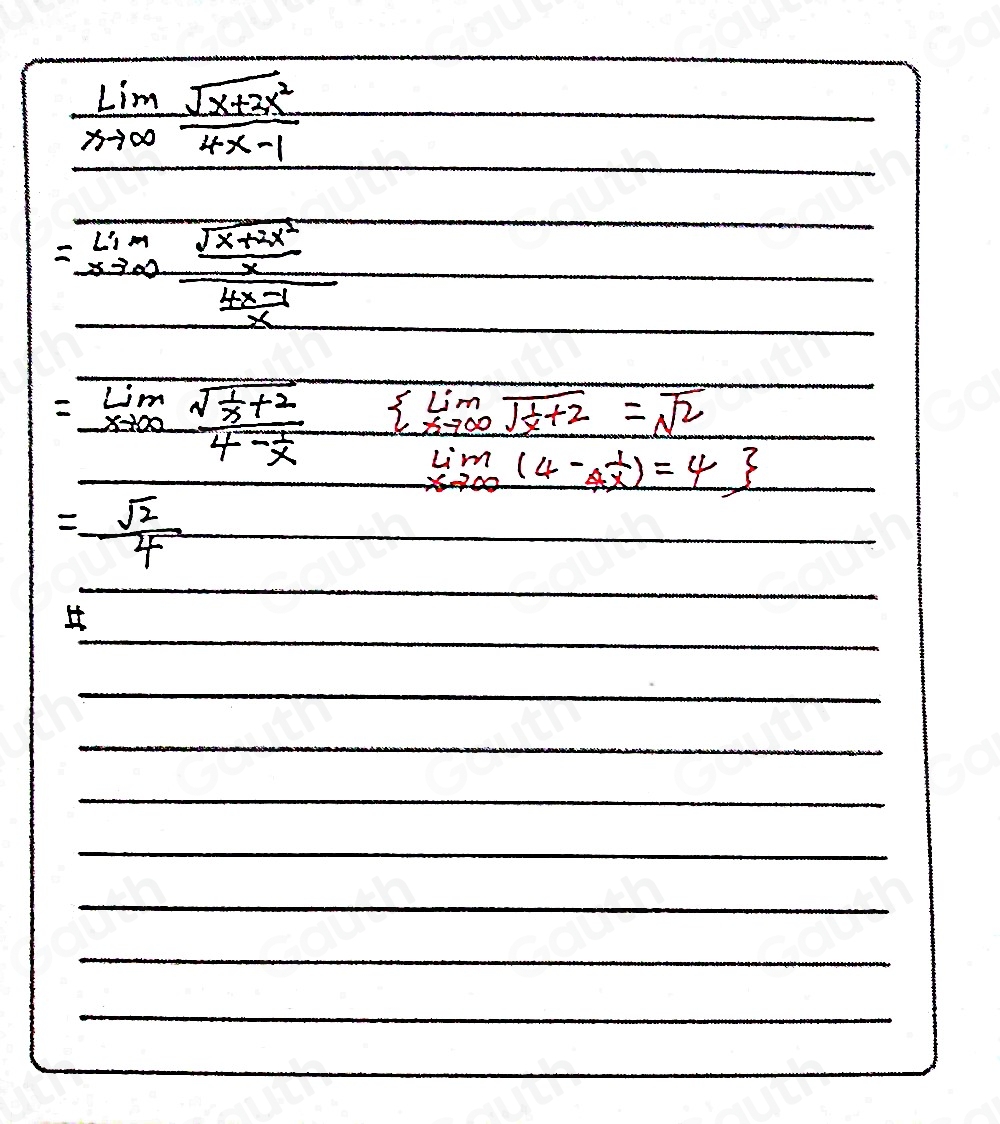 Lim x→∞ √(x+2x²) / (4x-1)
= Lim x→∞ (√(x+2x²) / x) / ((4x-1) / x)
= Lim x→∞ √(1/x+2) / (4-1/x) { Lim x→∞ √(1/x+2) = √2
Lim x→∞ (4-1/x) = 4 }
= √2/4
#